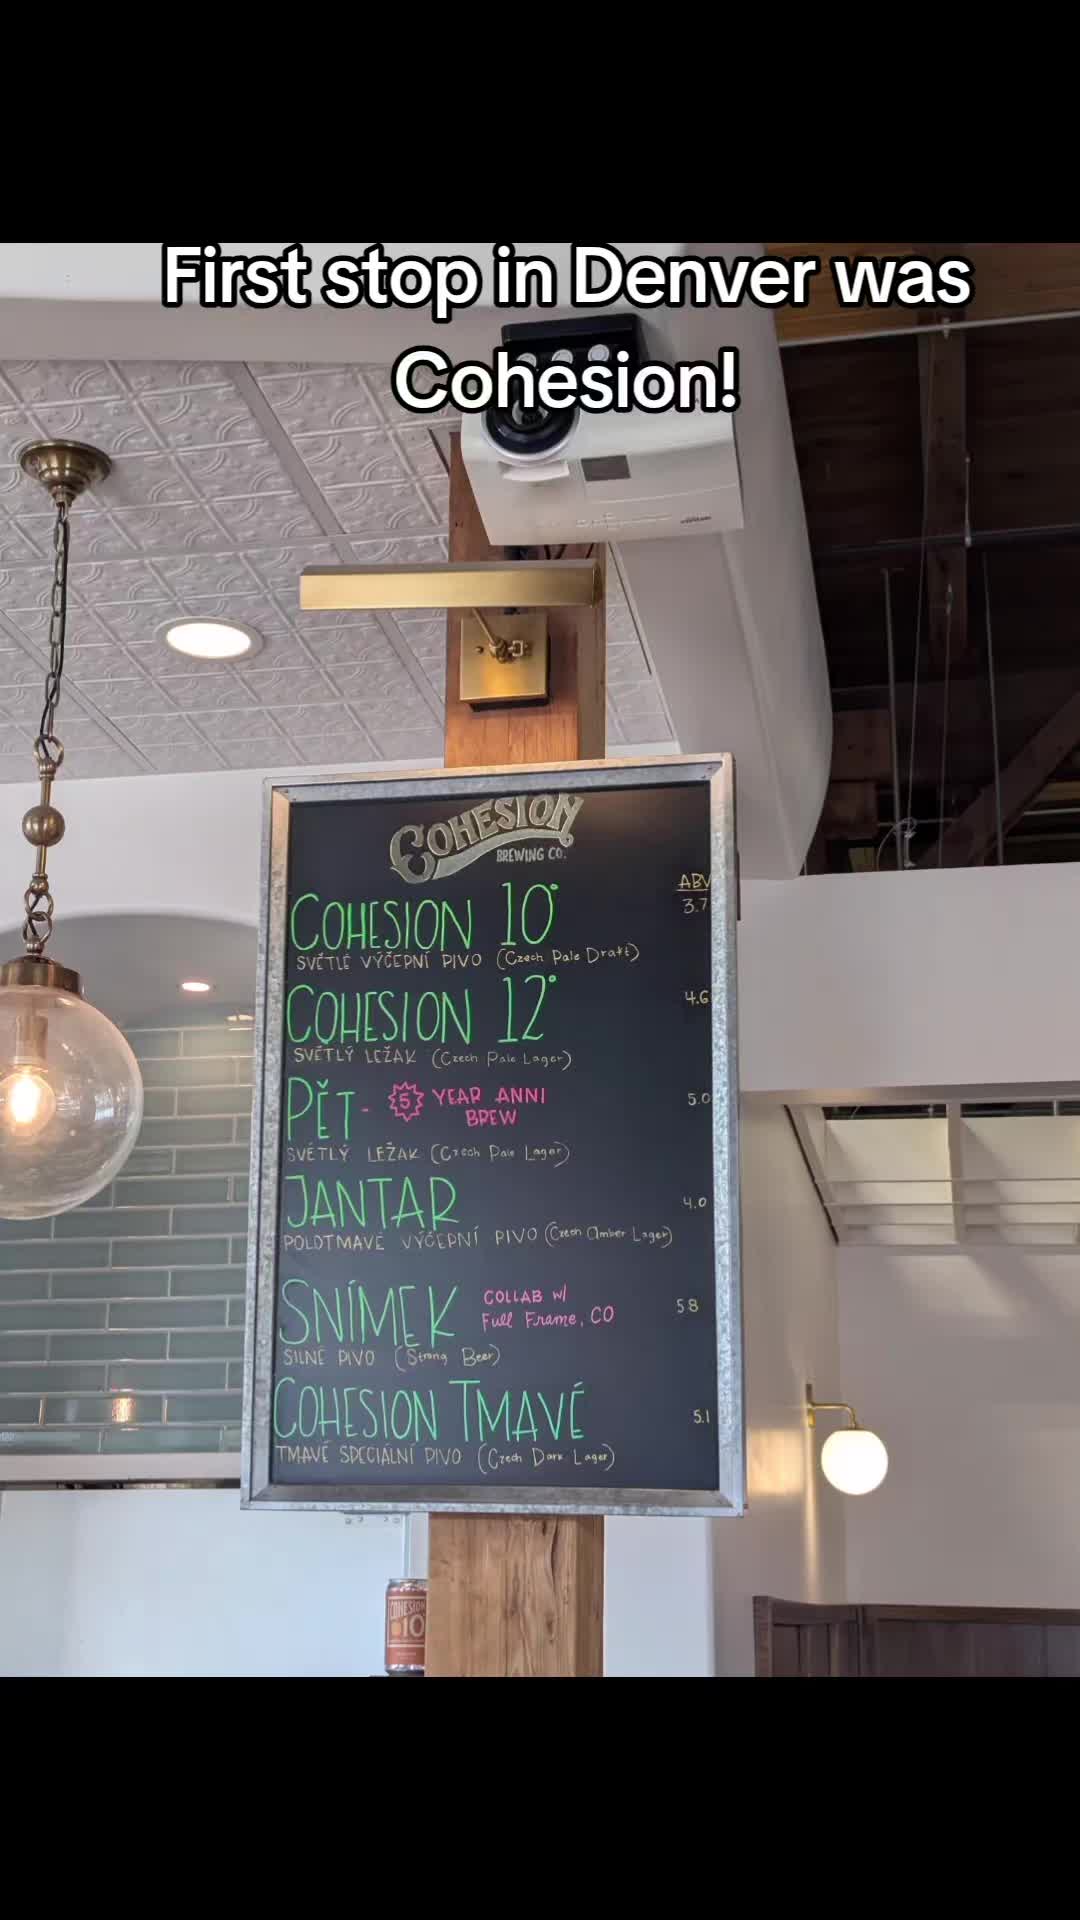 First stop in Denver was
Cohesion!
COHESION
BREWING CO.
ABV
COHESION 10° 3.7
SVĚTLÉ VÝČEPNÍ PIVO (Czech Pale Draft)
COHESION 12° 4.6
SVĚTLÝ LEŽAK (Czech Pale Lager)
PĚT - 5 YEAR ANNI 5.0
BREW
SVĚTLÝ LEŽAK (Czech Pale Lager)
JANTAR 4.0
POLOTMAVÉ VÝČEPNÍ PIVO (Czech Amber Lager)
SNÍMEK COLLAB W/ 5.8
Full Frame, CO
SILNÉ PIVO (Strong Beer)
COHESION TMAVÉ 5.1
TMAVÉ SPECIÁLNÍ PIVO (Czech Dark Lager)
COHESION
10